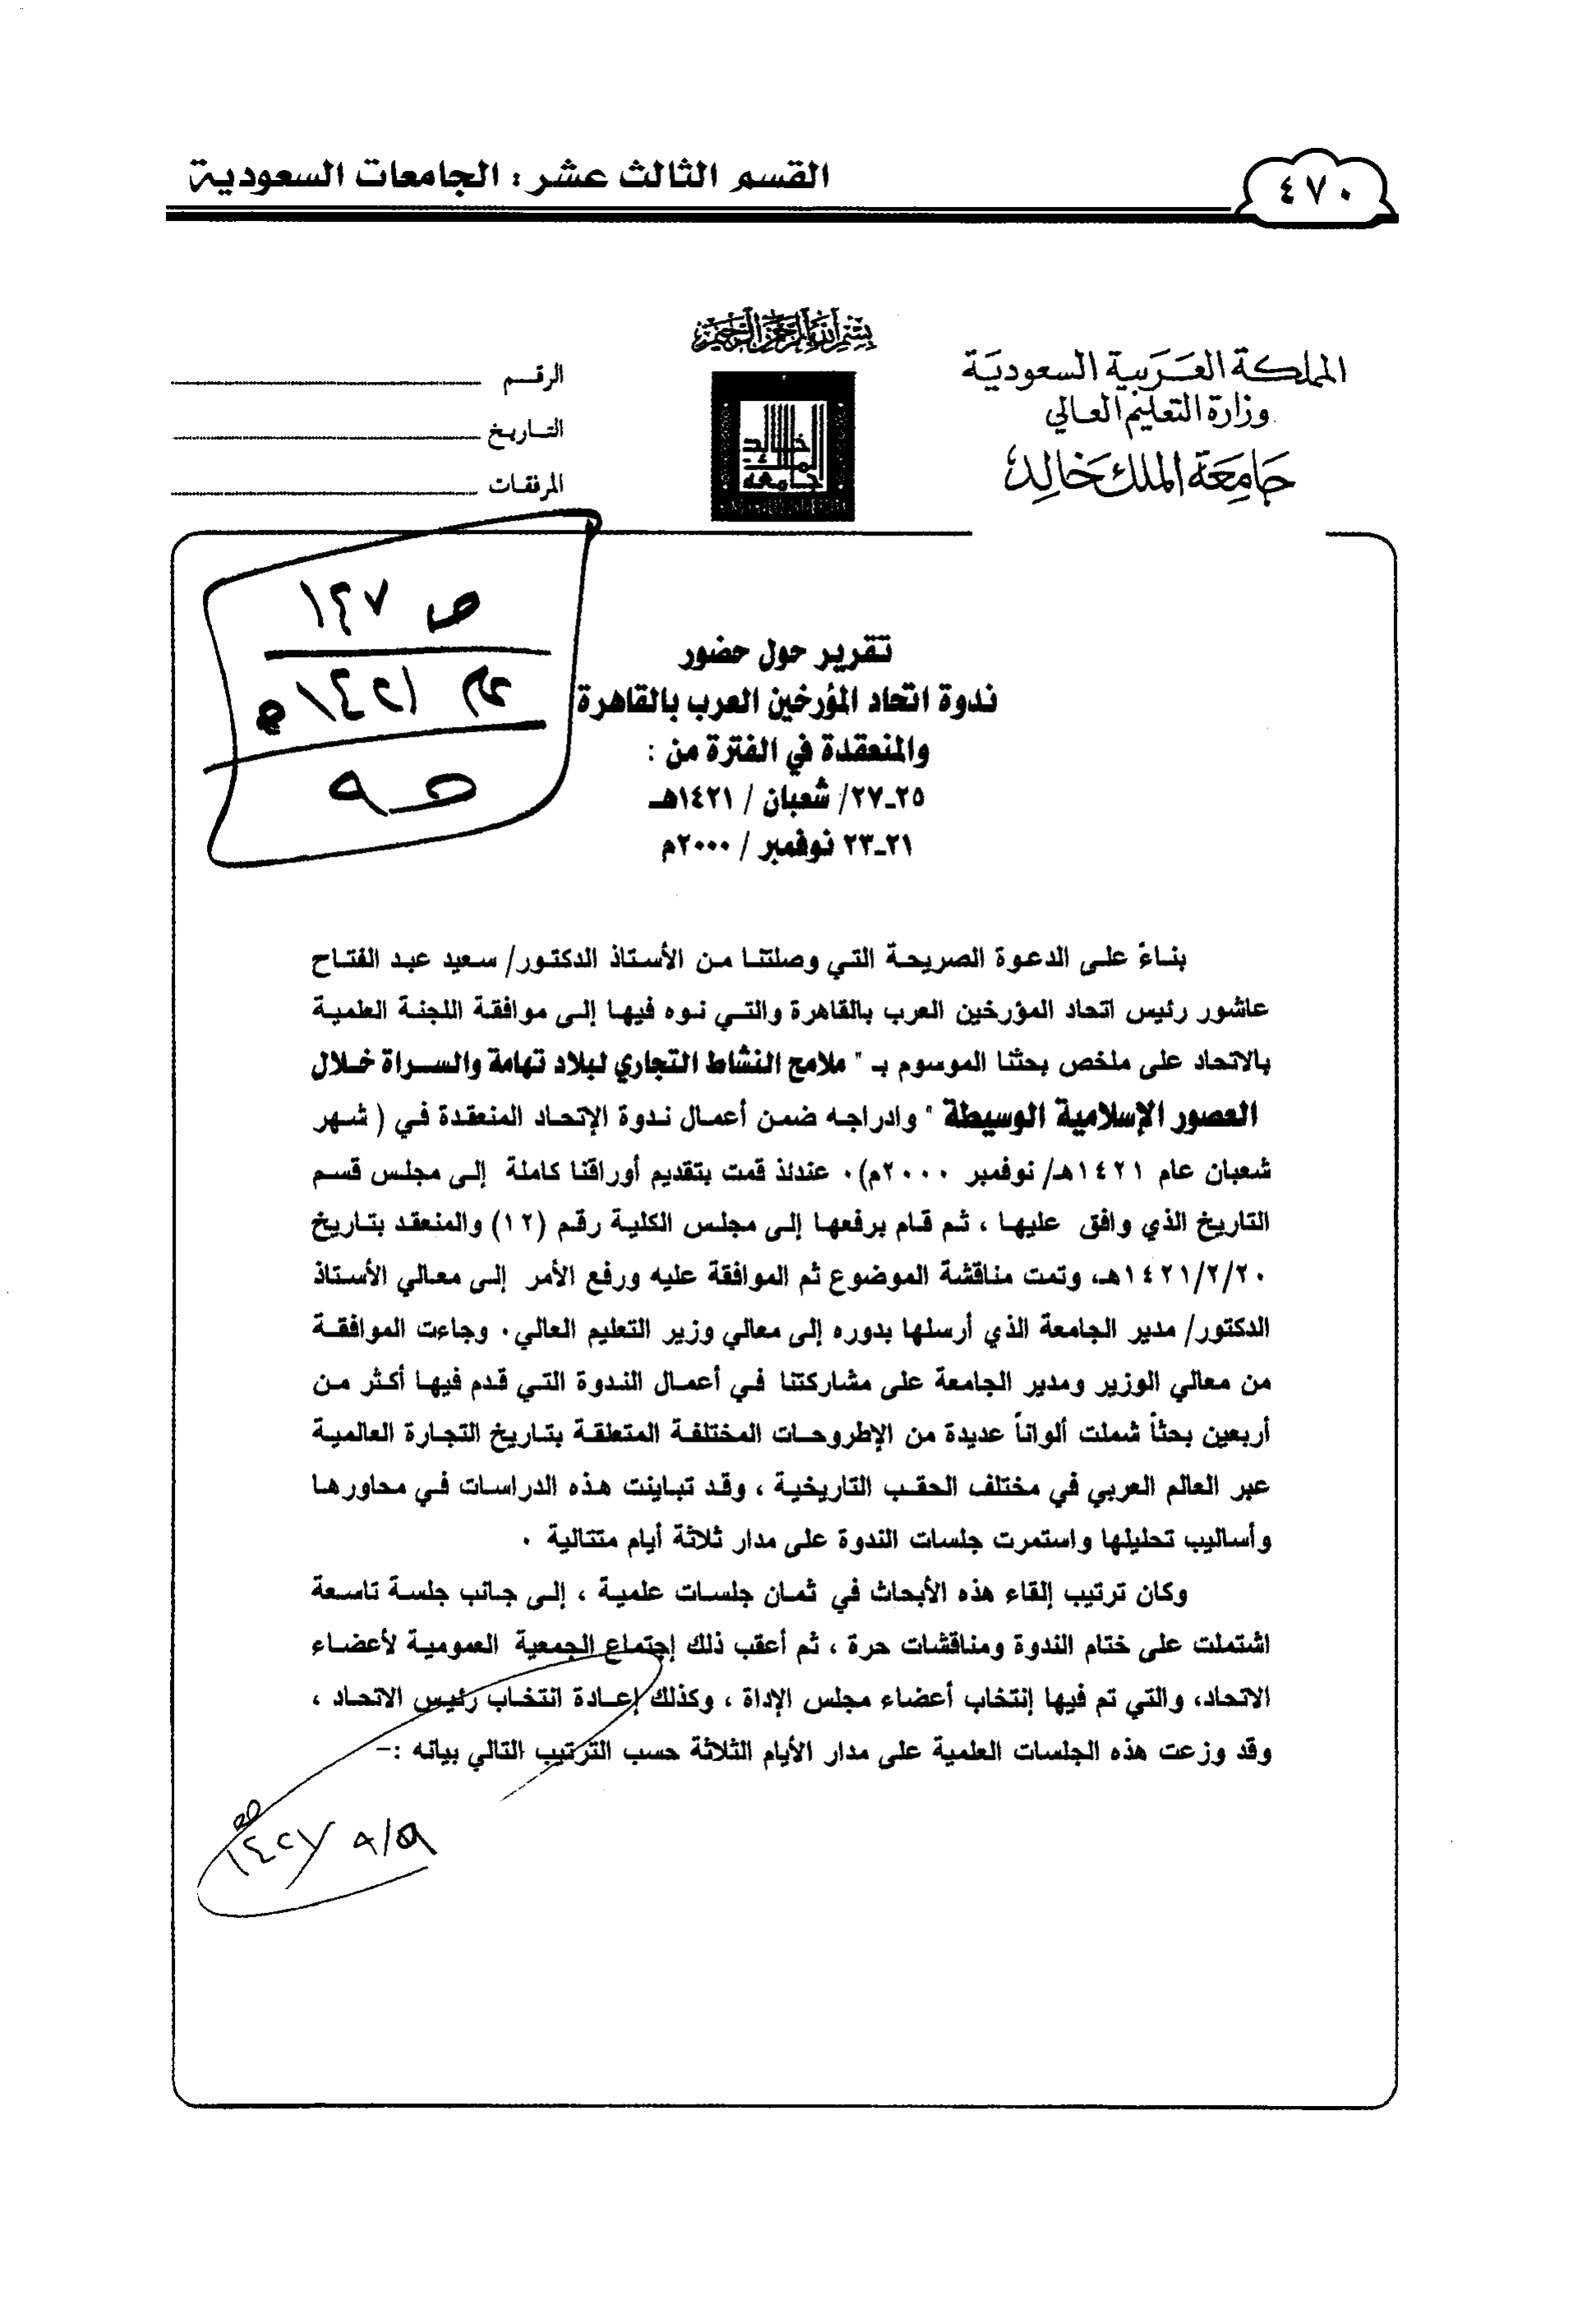 ٤٧٠
القسم الثالث عشر : الجامعات السعودية
بسم الله الرحمن الرحيم
المملكة العربية السعودية
وزارة التعليم العالي
جامعة الملك خالد
الرقم
التاريخ
المرفقات
جامعة الملك خالد
ص ١٢٧
عام ١٤٢١هـ
تقرير حول حضور
ندوة اتحاد المؤرخين العرب بالقاهرة
والمنعقدة في الفترة من :
٢٥-٢٧/ شعبان / ١٤٢١هـ
٢١-٢٣ نوفمبر / ٢٠٠٠م
بناءً على الدعوة الصريحة التي وصلتنا من الأستاذ الدكتور/ سعيد عبد الفتاح
عاشور رئيس اتحاد المؤرخين العرب بالقاهرة والتي نوه فيها إلى موافقة اللجنة العلمية
بالاتحاد على ملخص بحثنا الموسوم بـ " ملامح النشاط التجاري لبلاد تهامة والسراة خلال
العصور الإسلامية الوسيطة " وادراجه ضمن أعمال ندوة الإتحاد المنعقدة في ( شهر
شعبان عام ١٤٢١هـ/ نوفمبر ٢٠٠٠م)٠ عندئذ قمت بتقديم أوراقنا كاملة إلى مجلس قسم
التاريخ الذي وافق عليها ، ثم قام برفعها إلى مجلس الكلية رقم (١٢) والمنعقد بتاريخ
١٤٢١/٢/٢٠هـ، وتمت مناقشة الموضوع ثم الموافقة عليه ورفع الأمر إلى معالي الأستاذ
الدكتور/ مدير الجامعة الذي أرسلها بدوره إلى معالي وزير التعليم العالي٠ وجاءت الموافقة
من معالي الوزير ومدير الجامعة على مشاركتنا في أعمال الندوة التي قدم فيها أكثر من
أربعين بحثاً شملت ألواناً عديدة من الإطروحات المختلفة المتعلقة بتاريخ التجارة العالمية
عبر العالم العربي في مختلف الحقب التاريخية ، وقد تباينت هذه الدراسات في محاورها
وأساليب تحليلها واستمرت جلسات الندوة على مدار ثلاثة أيام متتالية ٠
وكان ترتيب إلقاء هذه الأبحاث في ثمان جلسات علمية ، إلى جانب جلسة تاسعة
اشتملت على ختام الندوة ومناقشات حرة ، ثم أعقب ذلك إجتماع الجمعية العمومية لأعضاء
الاتحاد، والتي تم فيها إنتخاب أعضاء مجلس الإداة ، وكذلك إعادة انتخاب رئيس الاتحاد ،
وقد وزعت هذه الجلسات العلمية على مدار الأيام الثلاثة حسب الترتيب التالي بيانه :-